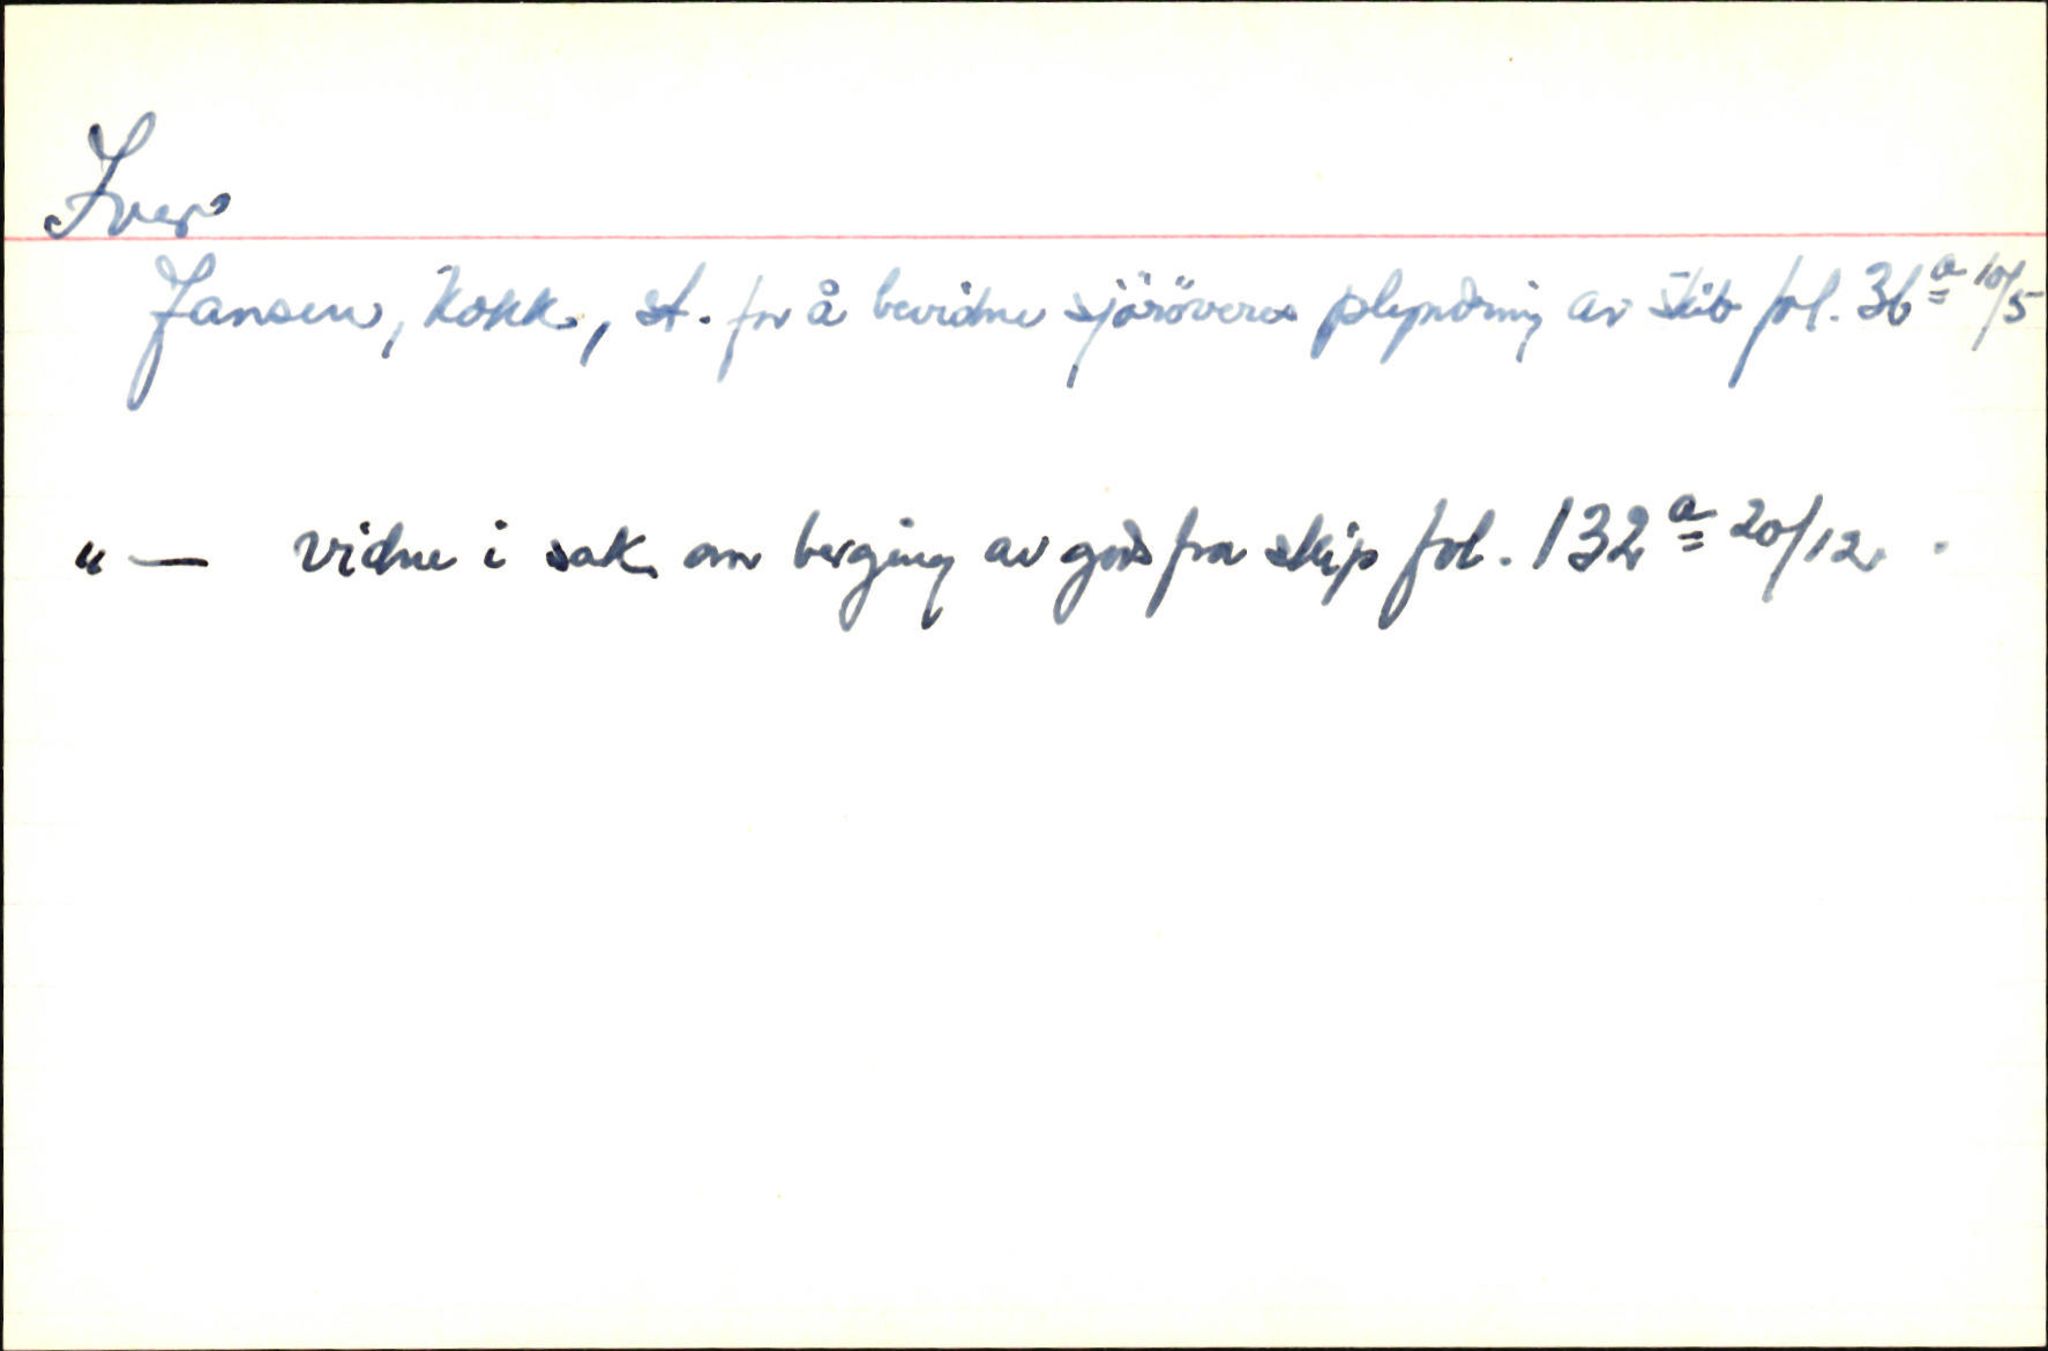 Iver
Jansen, kokk, st. for å bevidne sjöröveres plyndring av skib fol. 36a 10/5
"— vidne i sak om berging av gods fra skip fol. 132a 20/12.